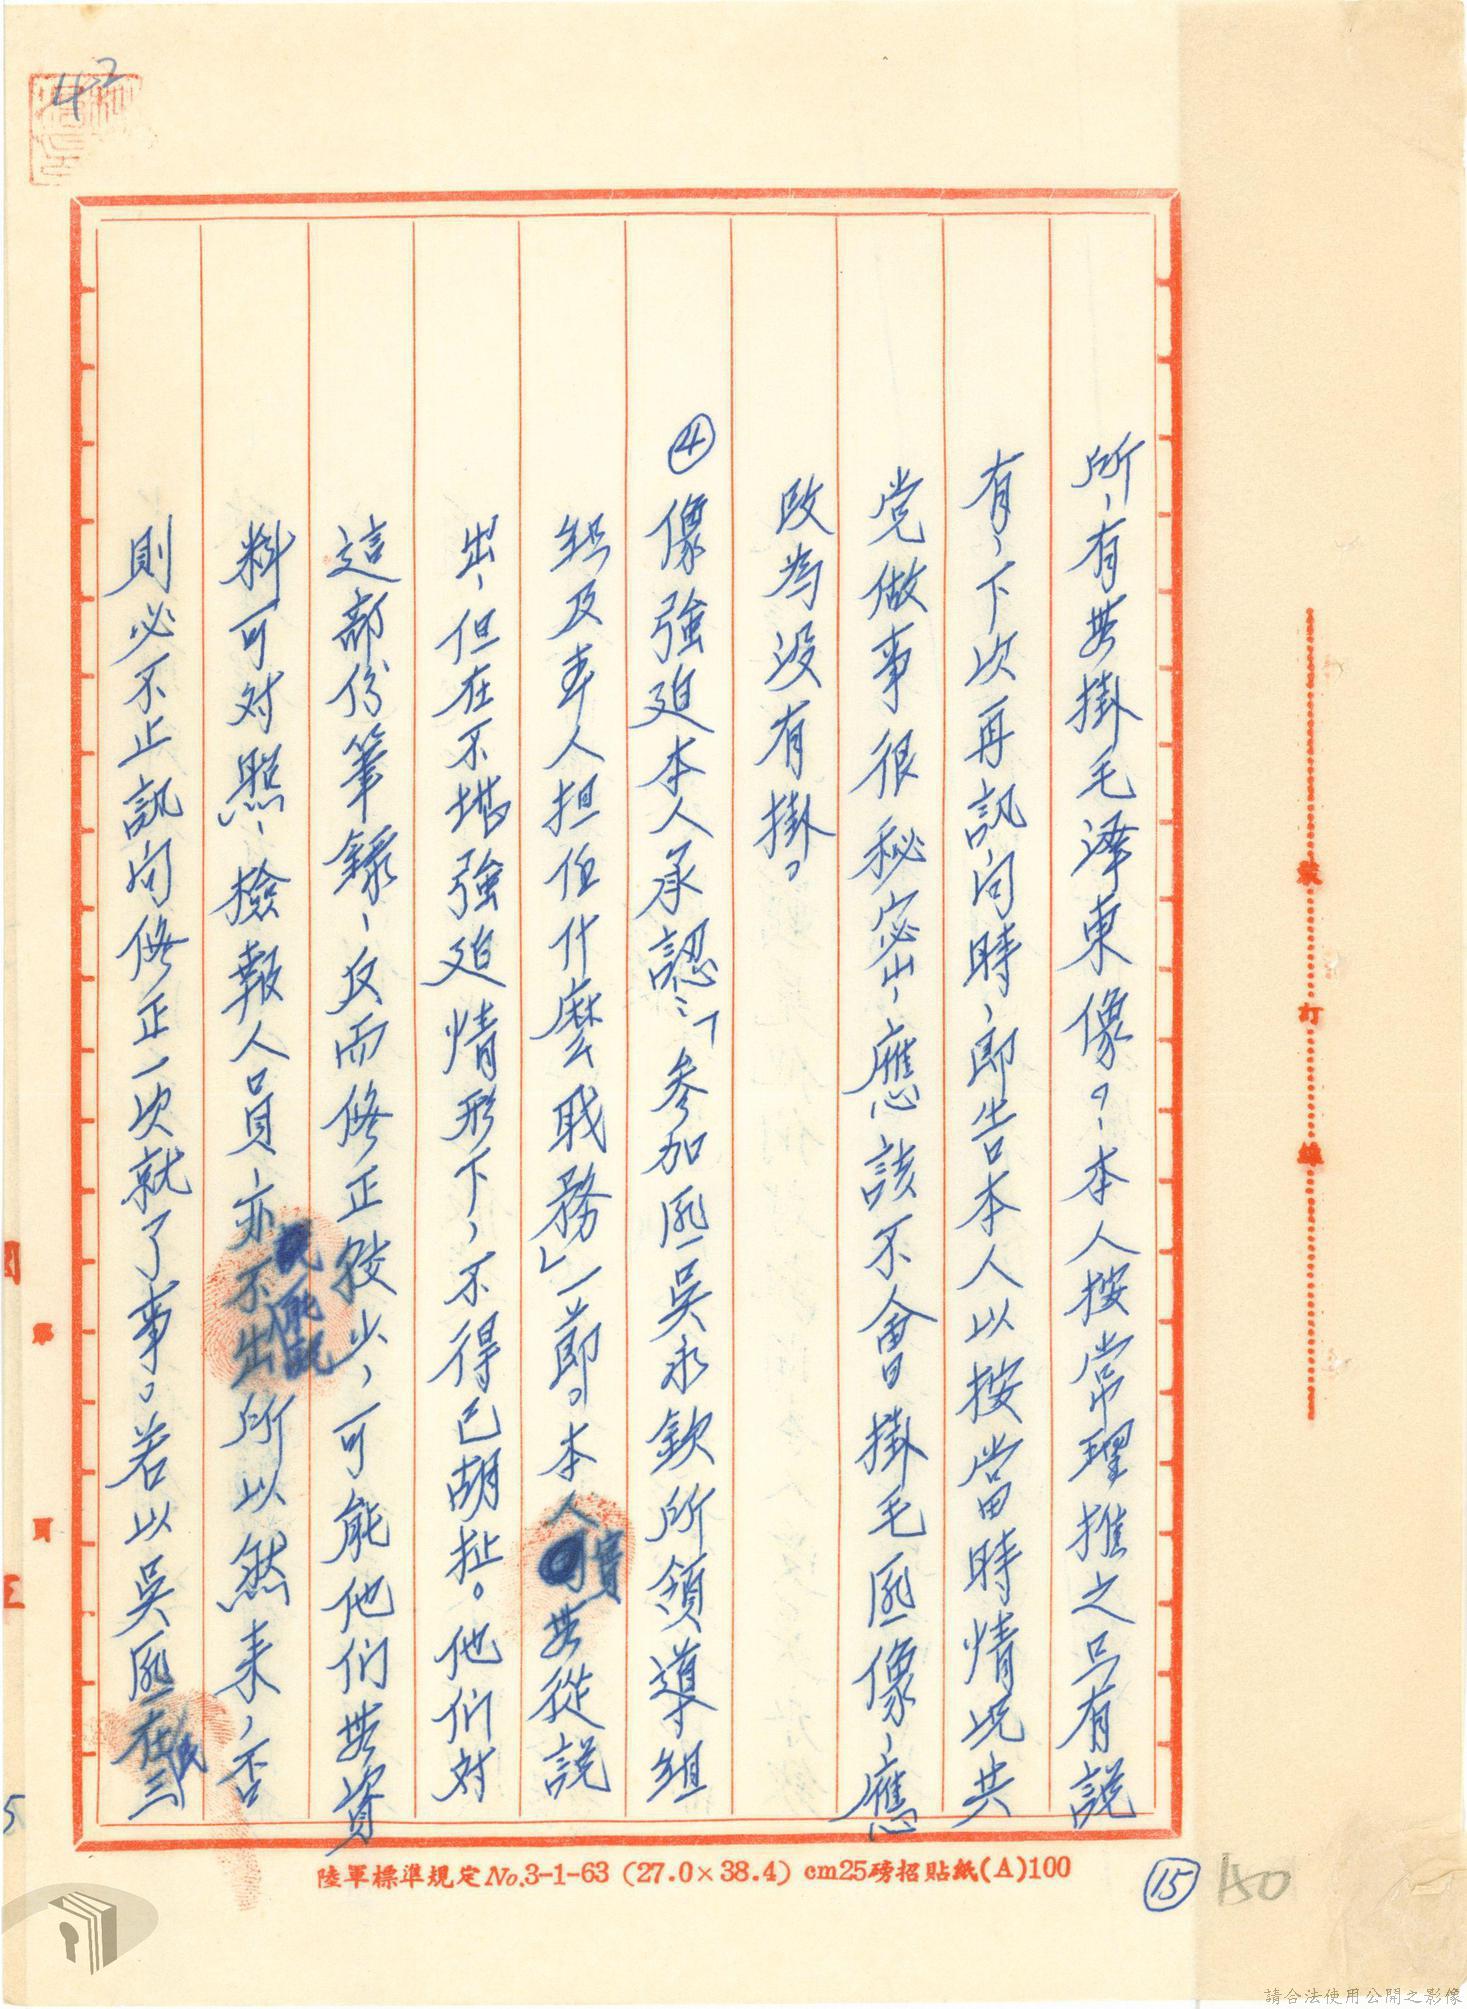 42
所，有無掛毛澤東像。，本人按常理推之只有說
有，下次再訊问時，即告本人以按當時情况共
党做事很秘密，應該不會掛毛匪像，應
改為没有掛。
④像強迫本人承認：「參加匪吳永欽所領導組
組及本人担任什麼职務」一節。本人實無從說
出，但在不堪強迫情形下，不得已胡扯。他们对
這部份筆錄，反而修正較少，可能他们無資
料可对照，檢報人員，亦說不出所以然来，否
則必不止訊问修正一次就了事。若以吳匪在
陸軍標準規定No.3-1-63 (27.0×38.4) cm25磅招貼紙(A)100
⑮
150
裝
訂
線
第
頁
請合法使用公開之影像